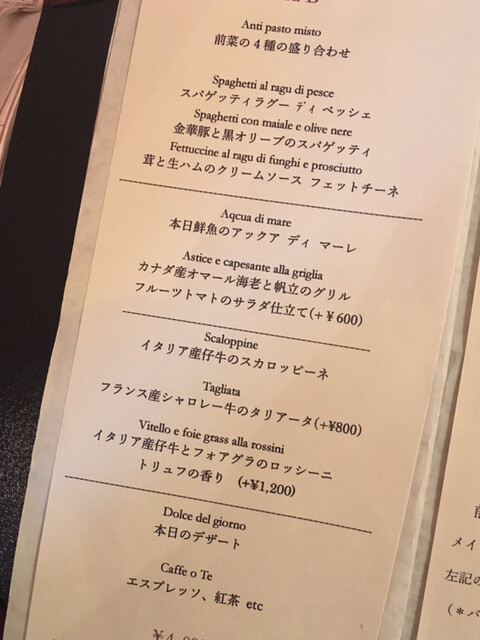 Anti pasto misto
前菜の4種の盛り合わせ
Spaghetti al ragu di pesce
スパゲッティラグー ディ ペッシェ
Spaghetti con maiale e olive nere
金華豚と黒オリーブのスパゲッティ
Fettuccine al ragu di funghi e prosciutto
茸と生ハムのクリームソース フェットチーネ
Aqcua di mare
本日鮮魚のアックア ディ マーレ
Astice e capesante alla griglia
カナダ産オマール海老と帆立のグリル
フルーツトマトのサラダ仕立て(+¥600)
Scaloppine
イタリア産仔牛のスカロッピーネ
Tagliata
フランス産シャロレー牛のタリアータ(+¥800)
Vitello e foie grass alla rossini
イタリア産仔牛とフォアグラのロッシーニ
トリュフの香り (+¥1,200)
Dolce del giorno
本日のデザート
Caffe o Te
エスプレッソ、紅茶 etc
メイ
左記の